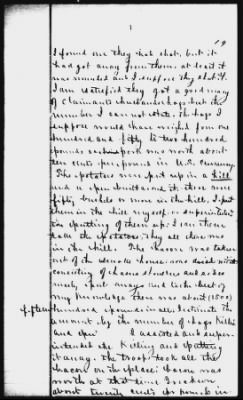 19
I found one they had shot, but it
had got away from them, at least it
was wounded and I suppose they shot it.
I am satisfied they got a good many
of Claimants shoats and hogs but the
number I can not state. The hogs I
suppose would have weighed from one
hundred and fifty to two hundred
pounds pork was worth about
ten cents per pound in U.S. currency.
The potatoes were put up in a hill
and a pen built around it, there were
fifty bushels or more in the hill. I put
them in the hill myself, or superintended
the putting of them up. I saw them
take the potatoes, they all that were
in the hill. The bacon was taken
out of the smoke house, was
consisting of hams shoulders and sides
nicely put away and to the best of
my knowledge there was about (1500)
fifteen hundred pounds in all, I estimate the
amount by the number of hogs killed
and I assisted and super-
intended the killing and putting
it away. The troops took all the
bacon on the place. Bacon was
worth at that time I reckon
about twenty cents per pound in